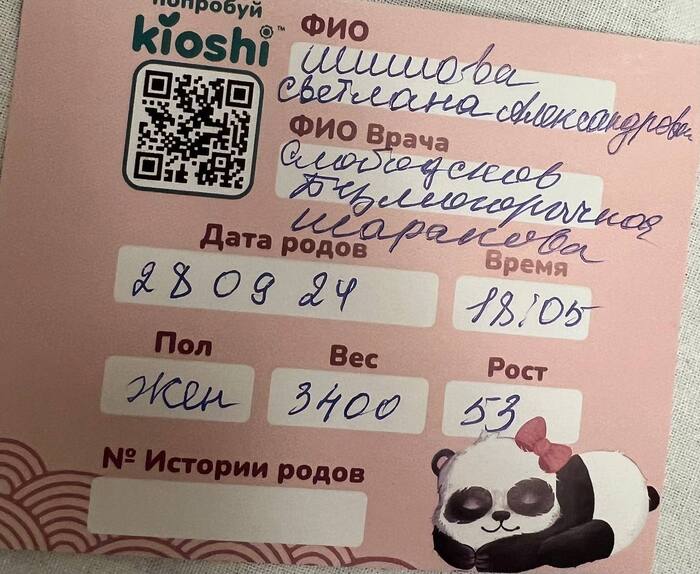 попробуй
kioshi™
ФИО
Шишова
Светлана Александровна
ФИО Врача
Слободсков
Безмогорычная
Шаракова
Дата родов
Время
28 09 24
18:05
Пол
Вес
Рост
жен
3400
53
№ Истории родов